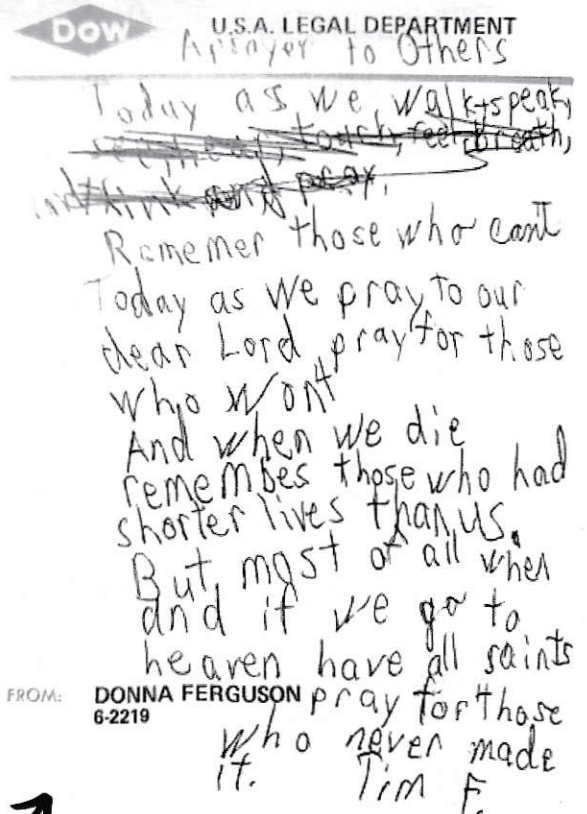 Dow
U.S.A. LEGAL DEPARTMENT
A Prayer to Others
Today as we walk, speak,
see, hear, touch, feel, breath,
and think and pray,
Rememer those who cant
Today as we pray to our
dear Lord pray for those
who wont
And when we die
remembes those who had
shorter lives than us.
But most of all when
and if we go to
heaven have all saints
FROM: DONNA FERGUSON pray for those
6-2219
who never made
it. Tim F.